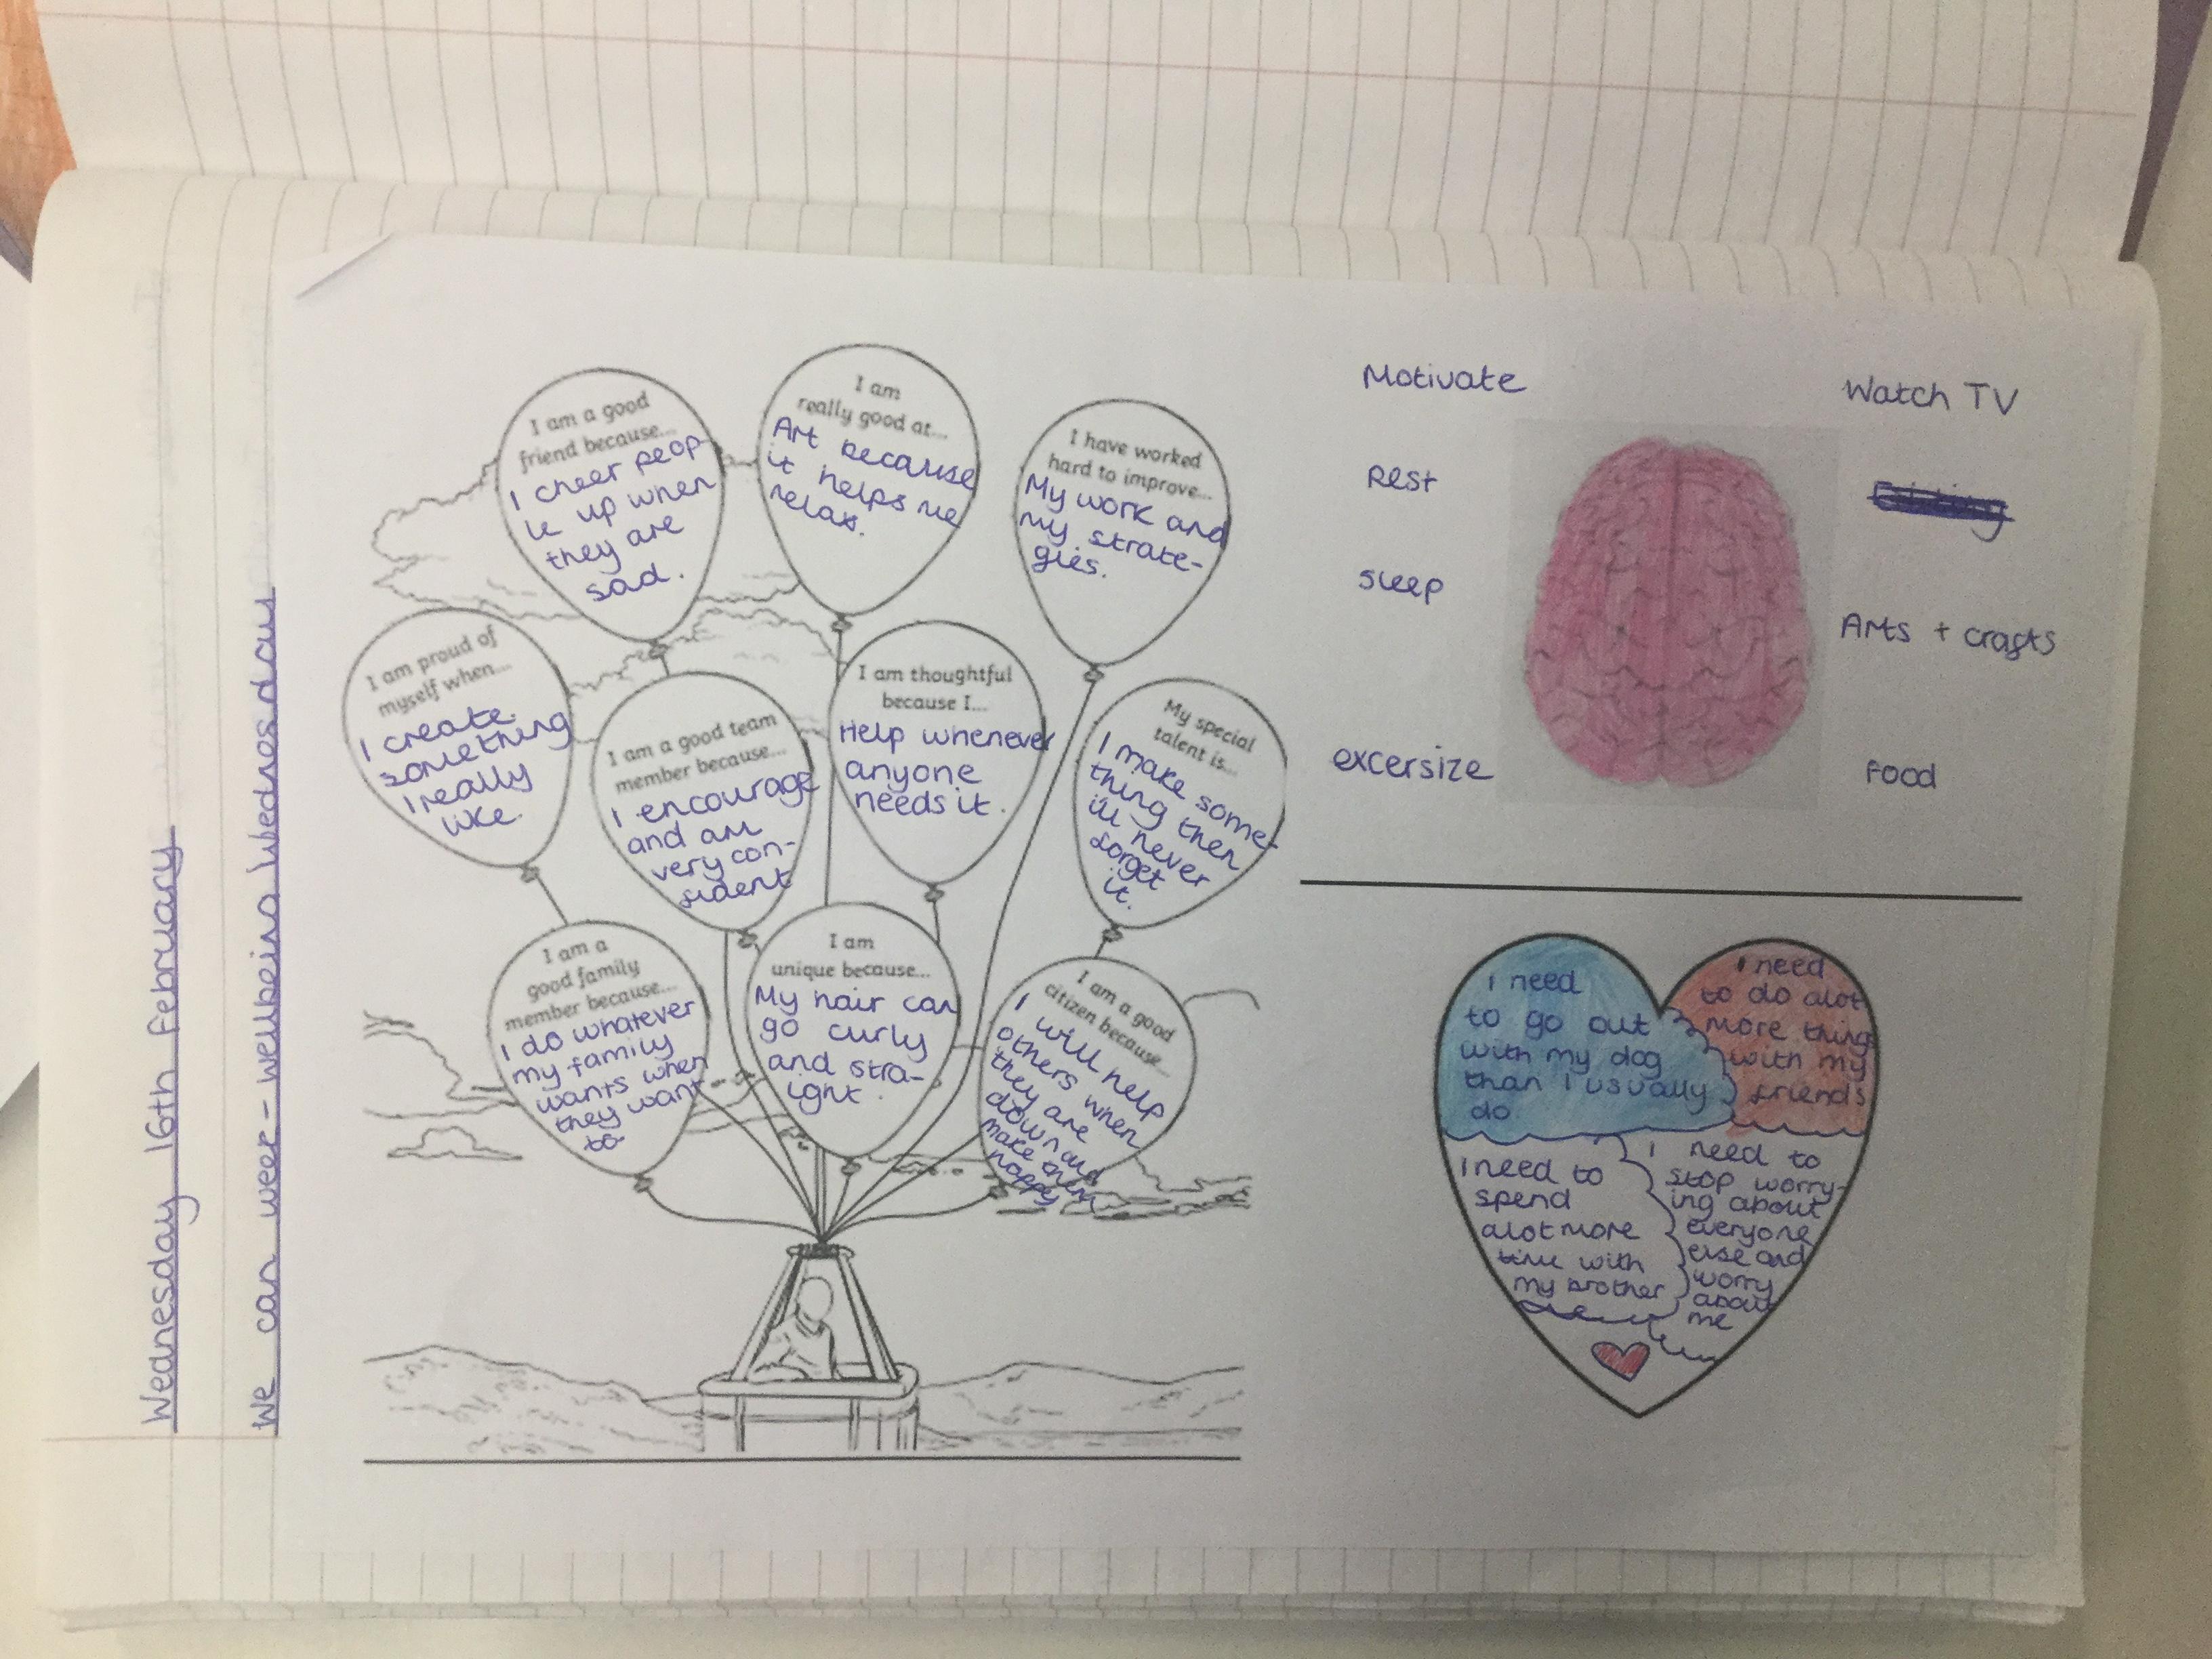 Wednesday 16th February
We can week - wellbeing Wednesday
I am a good
friend because...
I cheer peop-
le up when
they are
sad.
I am
really good at...
Art because
it helps me
relax.
I have worked
hard to improve...
My work and
my strate-
gies.
I am proud of
myself when...
I create
something
I really
like.
I am a good team
member because...
I encourage
and am
very con-
fident
I am thoughtful
because I...
Help whenever
anyone
needs it.
My special
talent is...
I make some-
thing then
ill never
forget
it.
I am a
good family
member because...
I do whatever
my family
wants when
they want
to.
I am
unique because...
My hair can
go curly
and stra-
ight.
I am a good
citizen because...
I will help
others when
they are
down and
make them
happy
Motivate
Rest
sleep
excersize
Watch TV
Arts + crafts
Food
I need
to go out
with my dog
than I usually
do.
I need
to do alot
more things
with my
friends
I need to
spend
alot more
time with
my brother
I need to
stop worry-
ing about
everyone
else and
worry
about
me